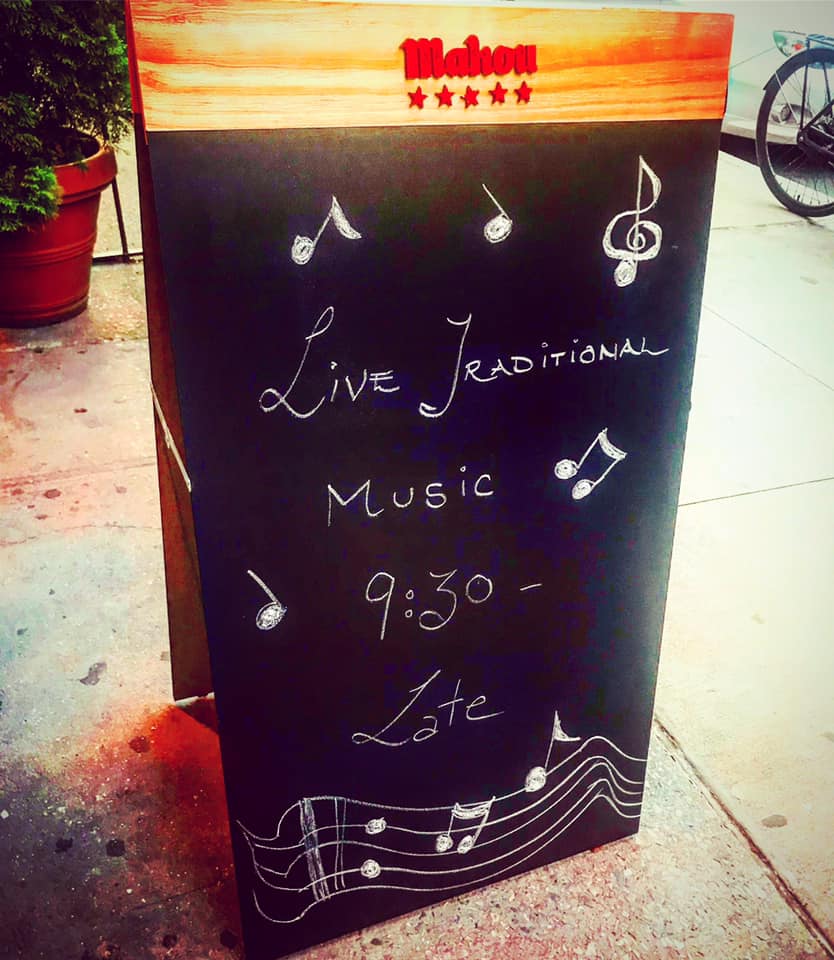 Mahou
Live Traditional
Music
9:30 -
Late